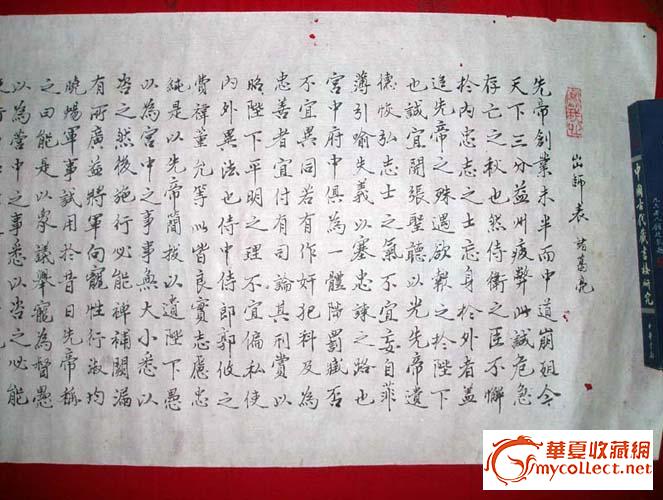 出師表 諸葛亮
先帝創業未半而中道崩殂今
天下三分益州疲弊此誠危急
存亡之秋也然侍衛之臣不懈
於內忠志之士忘身於外者蓋
追先帝之殊遇欲報之於陛下
也誠宜開張聖聽以光先帝遺
德恢弘志士之氣不宜妄自菲
薄引喻失義以塞忠諫之路也
宮中府中俱為一體陟罰臧否
不宜異同若有作奸犯科及為
忠善者宜付有司論其刑賞以
昭陛下平明之理不宜偏私使
內外異法也侍中侍郎郭攸之
費禕董允等此皆良實志慮忠
純是以先帝簡拔以遺陛下愚
以為宮中之事事無大小悉以
咨之然後施行必能裨補闕漏
有所廣益將軍向寵性行淑均
曉暢軍事試用於昔日先帝稱
之曰能是以眾議舉寵為督愚
以為營中之事悉以咨之必能
中國古代藏書樓研究
中華書局
華夏收藏網
mycollect.net